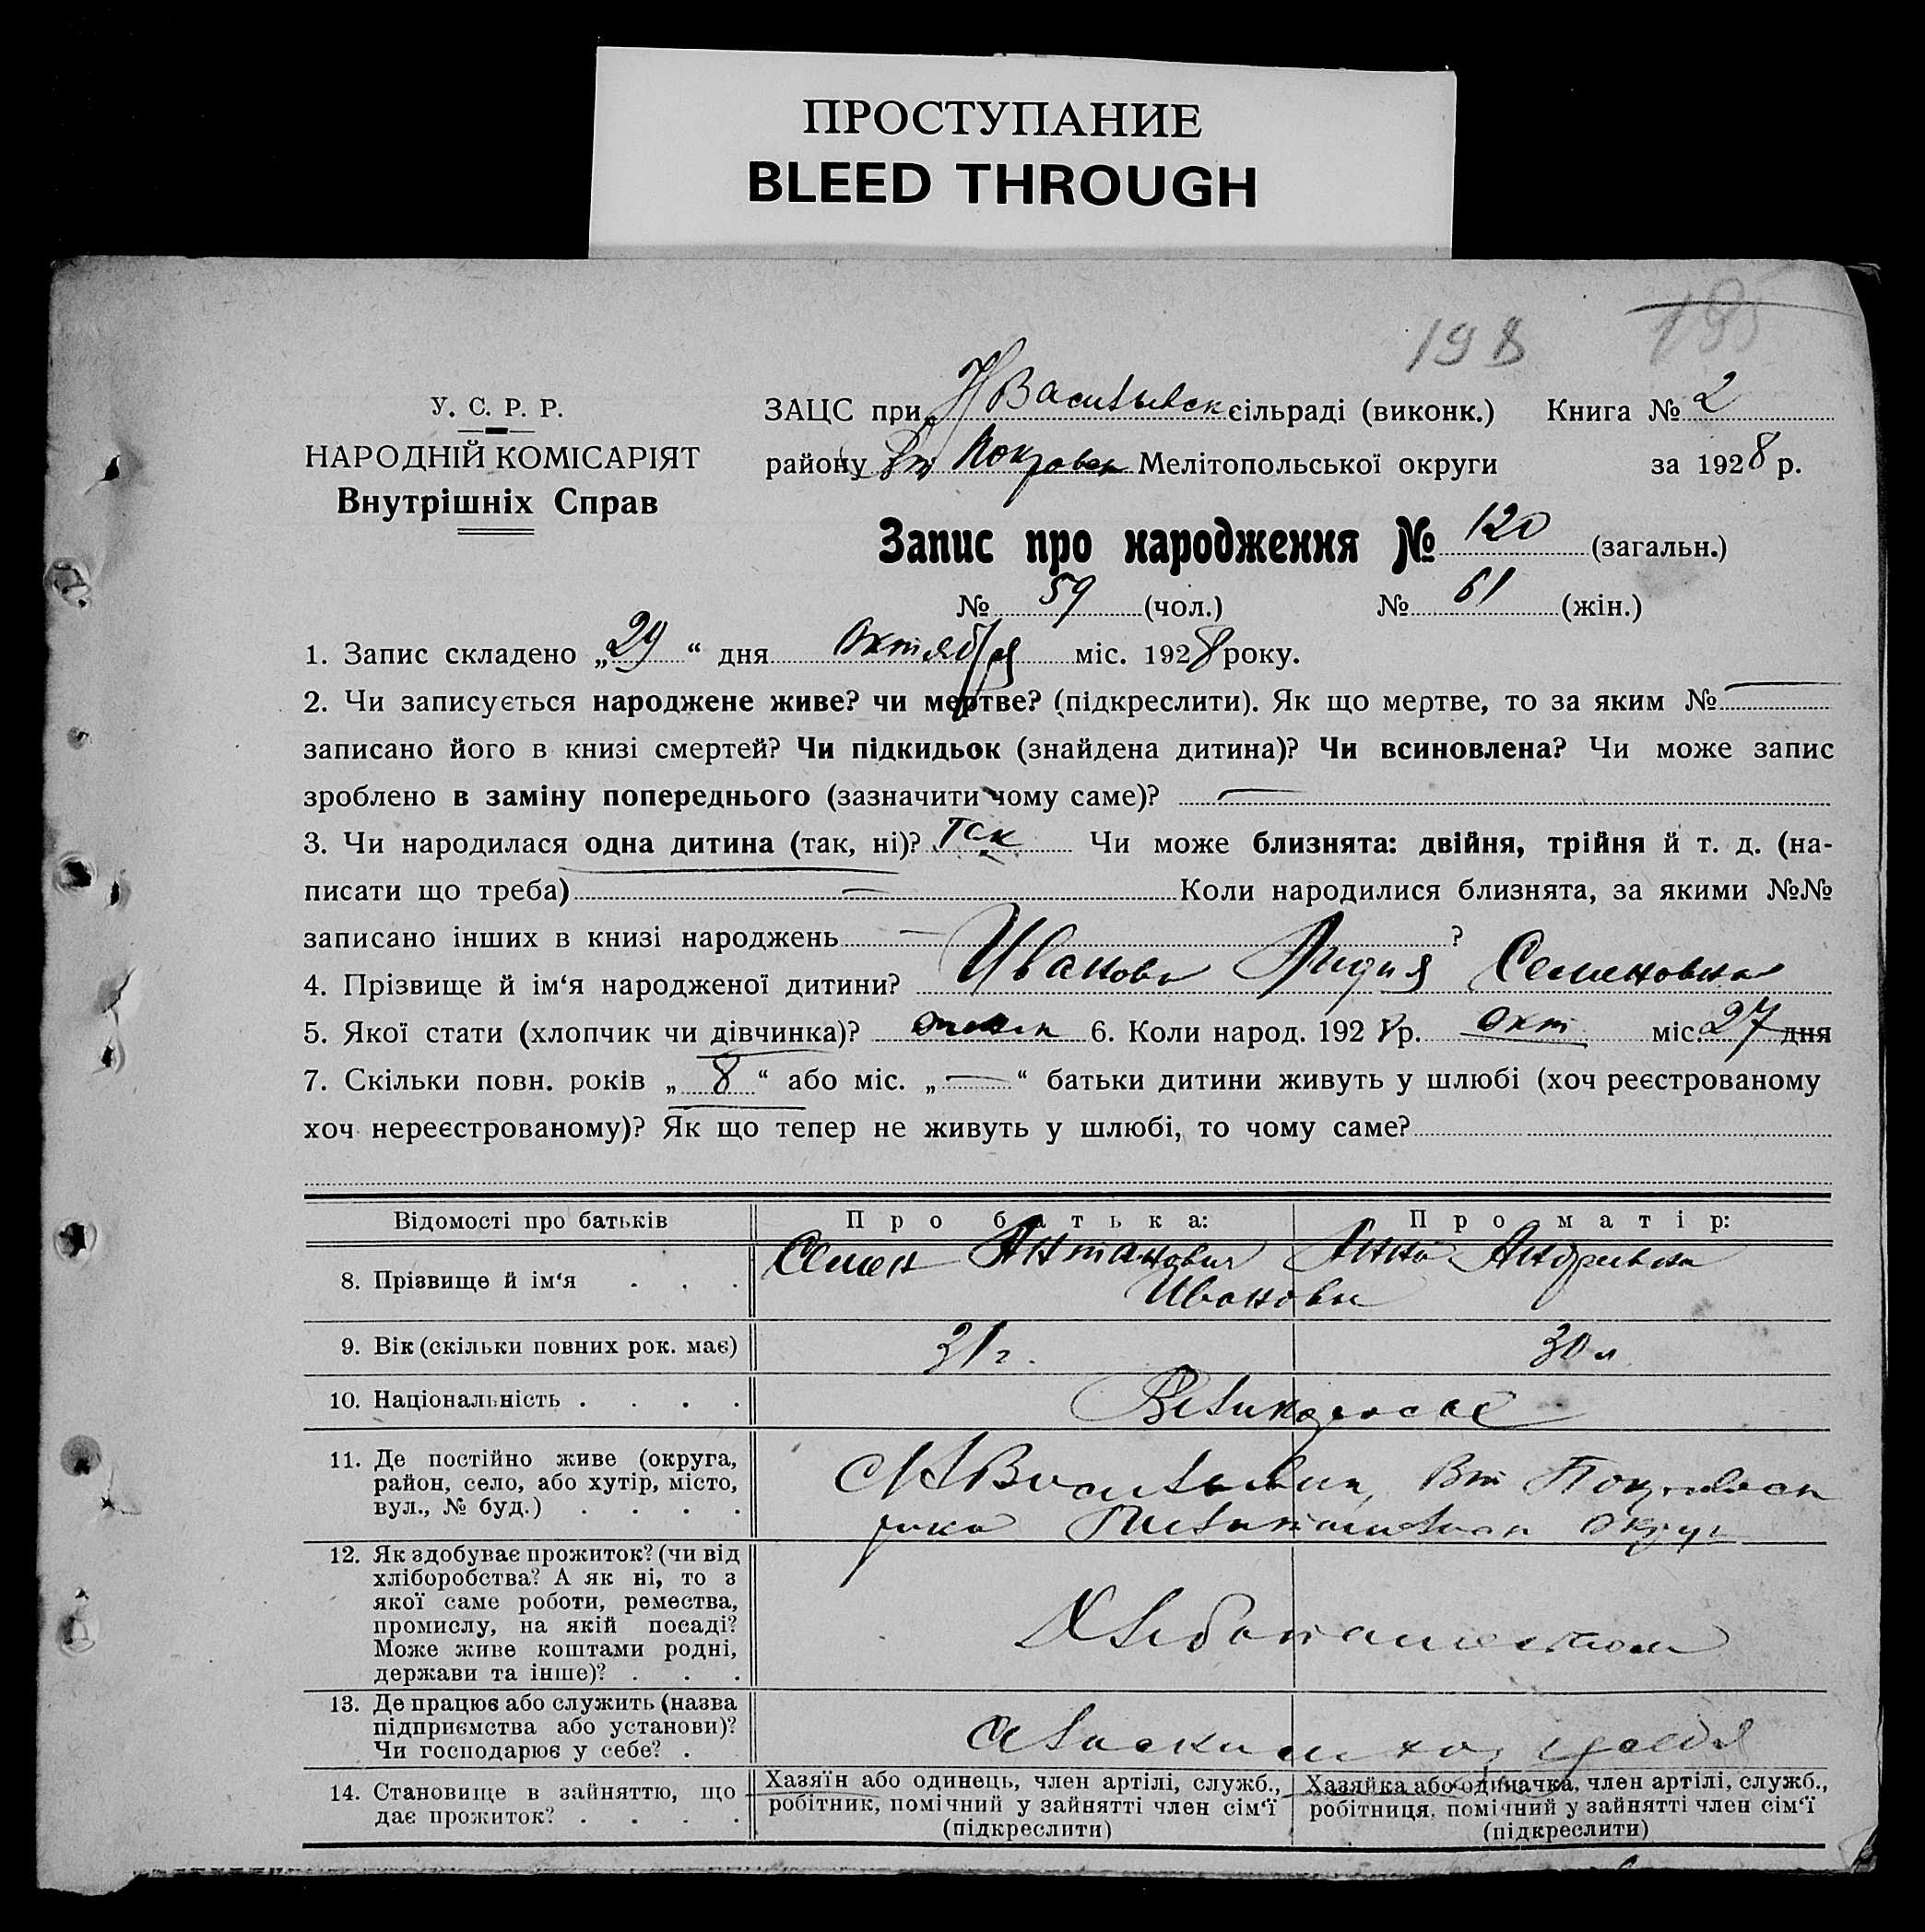 ПРОСТУПАНИЕ
BLEED THROUGH
198 195
У. С. Р. Р.
НАРОДНІЙ КОМІСАРІЯТ
Внутрішніх Справ
ЗАЦС при НВасильевск сільраді (виконк.) Книга № 2
району Вт Покровск Мелітопольської округи за 1928 р.
Запис про народження № 120 (загальн.)
№ 59 (чол.) № 61 (жін.)
1. Запис складено „29“ дня Октября міс. 1928 року.
2. Чи записується народжене живе? чи мертве? (підкреслити). Як що мертве, то за яким №
записано його в книзі смертей? Чи підкидьок (знайдена дитина)? Чи всиновлена? Чи може запис
зроблено в заміну попереднього (зазначити чому саме)?
3. Чи народилася одна дитина (так, ні)? так Чи може близнята: двійня, трійня й т. д. (на-
писати що треба) Коли народилися близнята, за якими №№
записано інших в книзі народжень ?
4. Прізвище й ім‘я народженої дитини? Иванова Лидия Семеновна
5. Якої стати (хлопчик чи дівчинка)? 6. Коли народ. 1928 р. окт міс. 27 дня
7. Скільки повн. років „8“ або міс. „—“ батьки дитини живуть у шлюбі (хоч реєстрованому
хоч нереєстрованому)? Як що тепер не живуть у шлюбі, то чому саме?
Відомості про батьків Про батька: Про матір:
8. Прізвище й ім‘я . . . Семен Антанович Анна Андреевна
Ивановы
9. Вік (скільки повних рок. має) 31 г. 30 л
10. Національність . . . . Великоросс
11. Де постійно живе (округа,
район, село, або хутір, місто,
вул., № буд.) . . . . С Н Васильевка, Вт Покровск
рика Мелитопольск округ
12. Як здобуває прожиток? (чи від
хліборобства? А як ні, то з
якої саме роботи, ремества,
промислу, на якій посаді?
Може живе коштами родні,
держави та інше)? . . . Хлебопашеством
13. Де працює або служить (назва
підприємства або установи)?
Чи господарює у себе? .
14. Становище в зайняттю, що
дає прожиток? . . . .
Хазяїн або одинець, член артілі, служб.,
робітник, помічний у зайнятті член сім‘ї
(підкреслити)
Хазяйка або одиначка, член артілі, служб.,
робітниця, помічний у зайнятті член сім‘ї
(підкреслити)